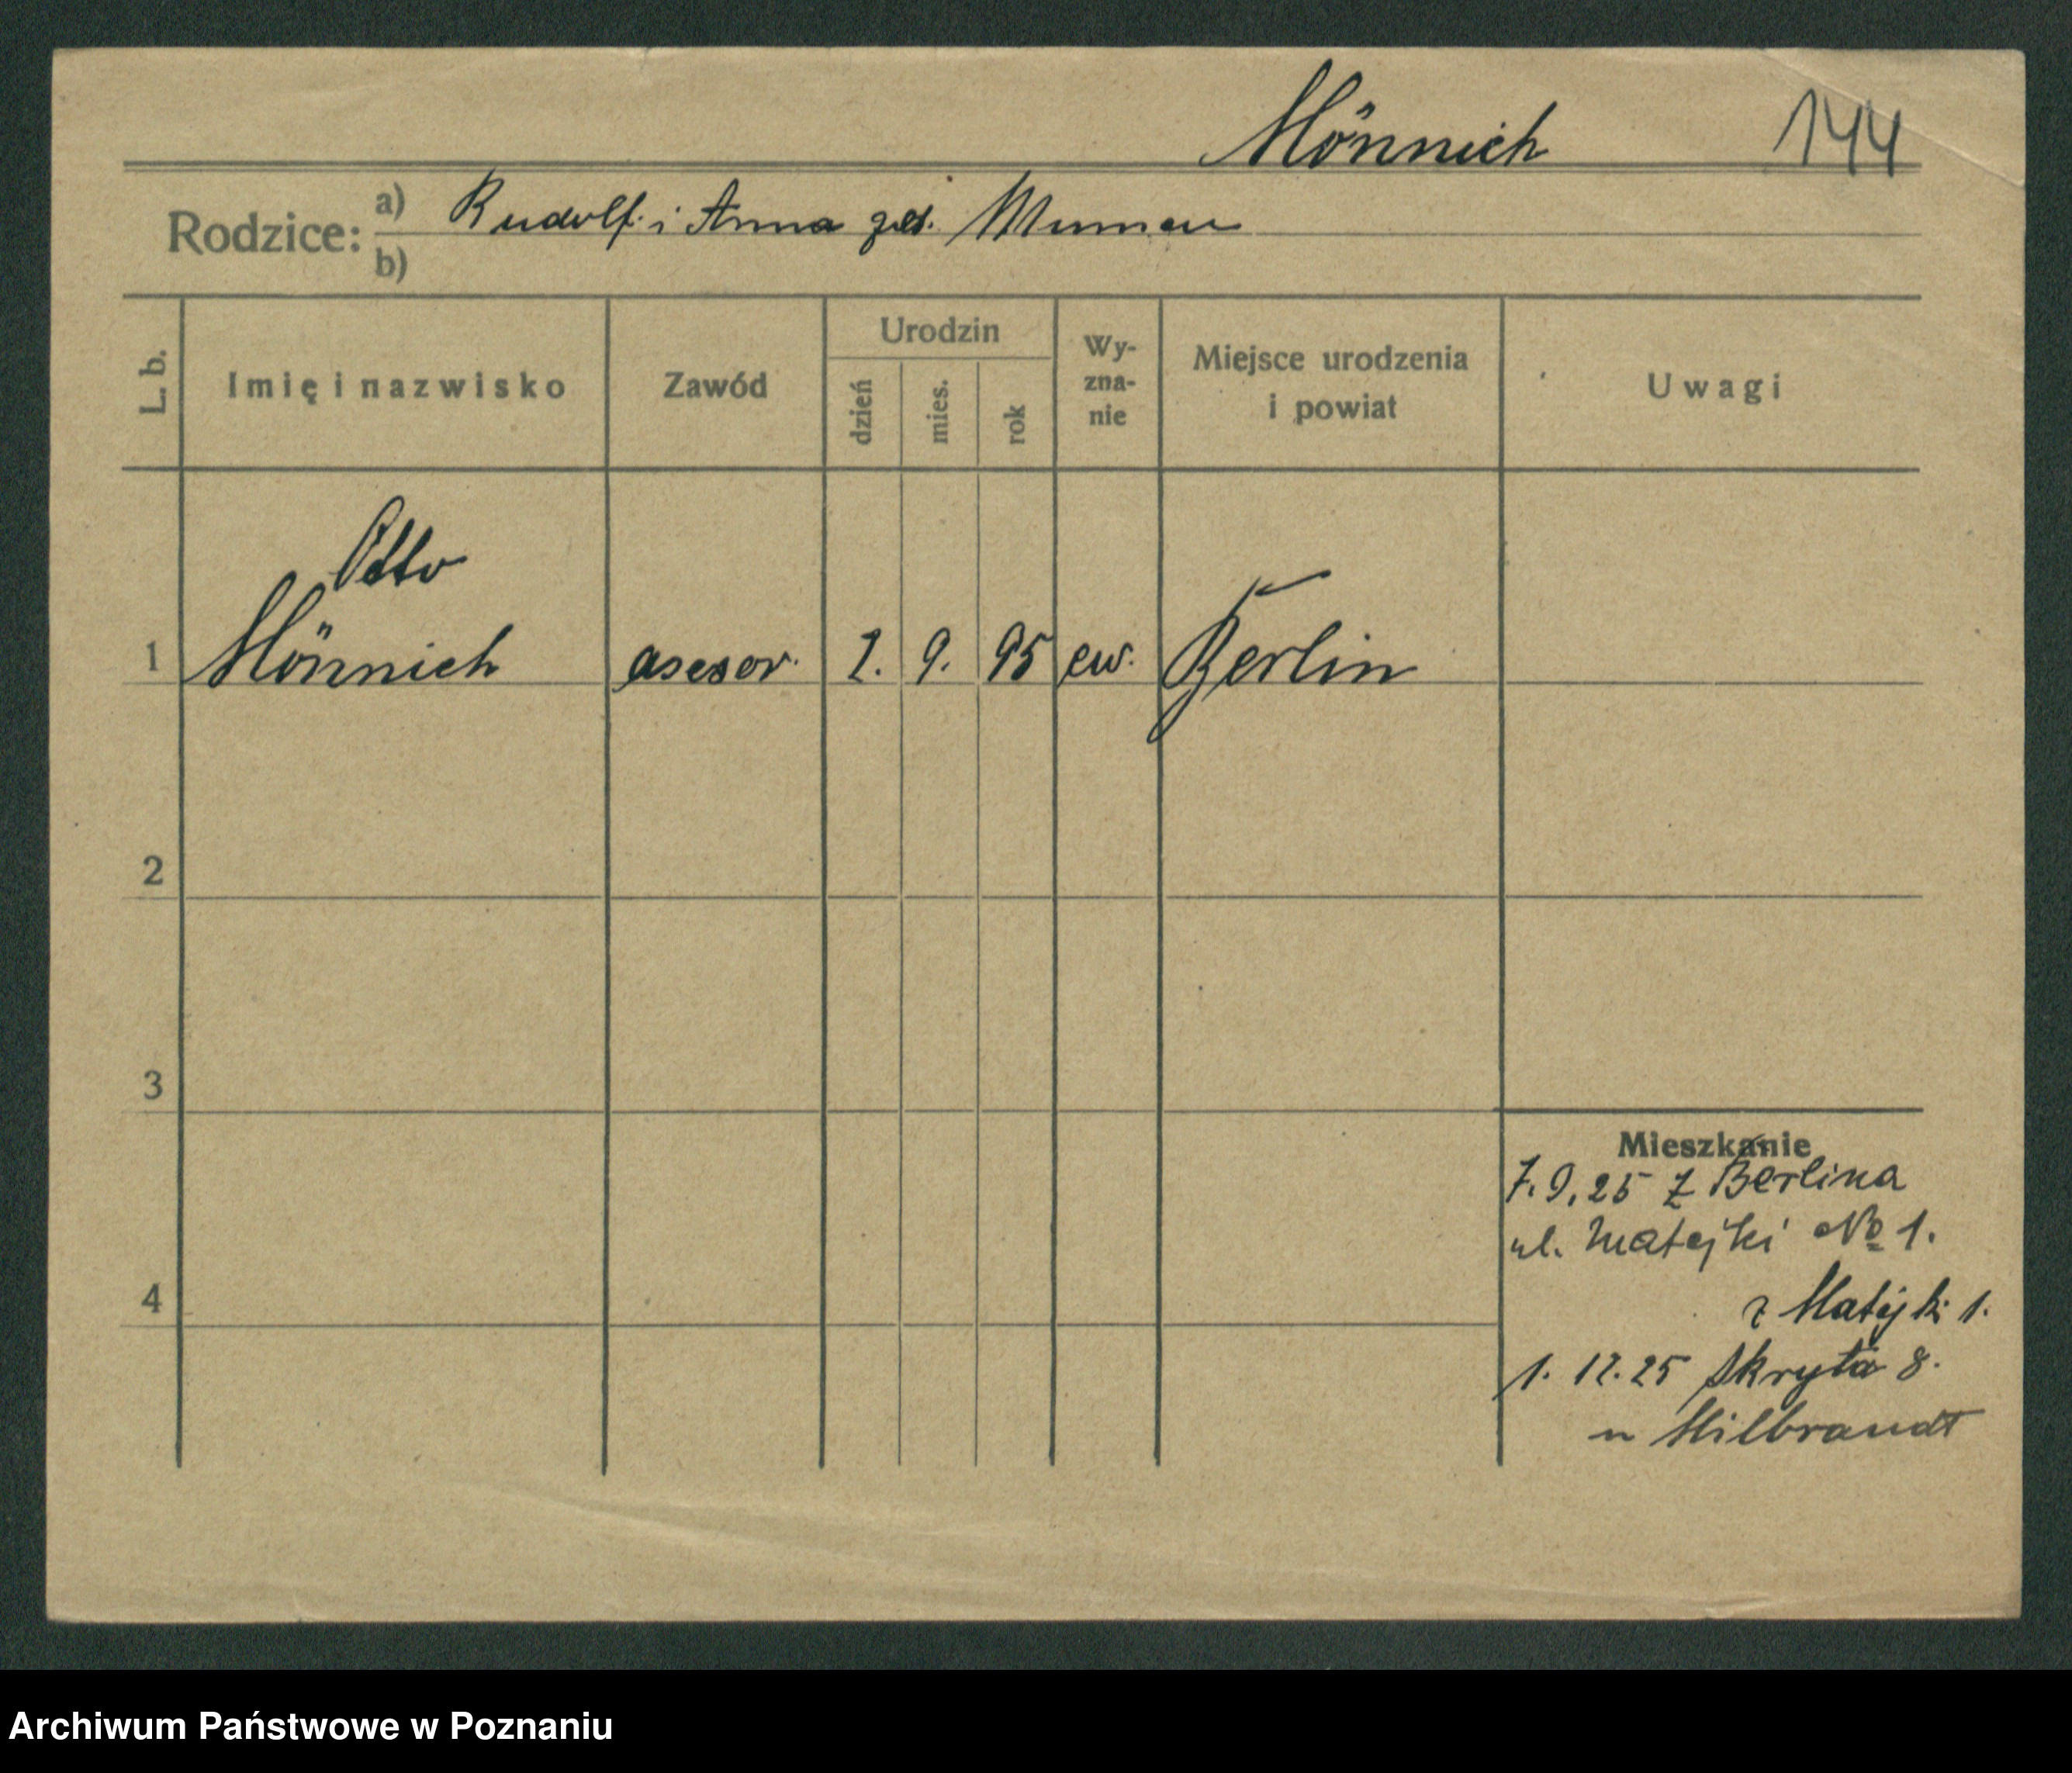 Mönnich 144
Rodzice: a) Rudolf i Anna
b)
L. b. Imię i nazwisko Zawód Urodzin dzień mies. rok Wy-zna-nie Miejsce urodzenia i powiat Uwagi
Otto
1 Mönnich asesor. 2. 9. 95 ew. Berlin
2
3
Mieszkanie
7.9.25 z Berlina
ul. Matejki № 1.
4
z Matejki 1.
1. 12.25 Skryta 8.
u Hilbrandt
Archiwum Państwowe w Poznaniu